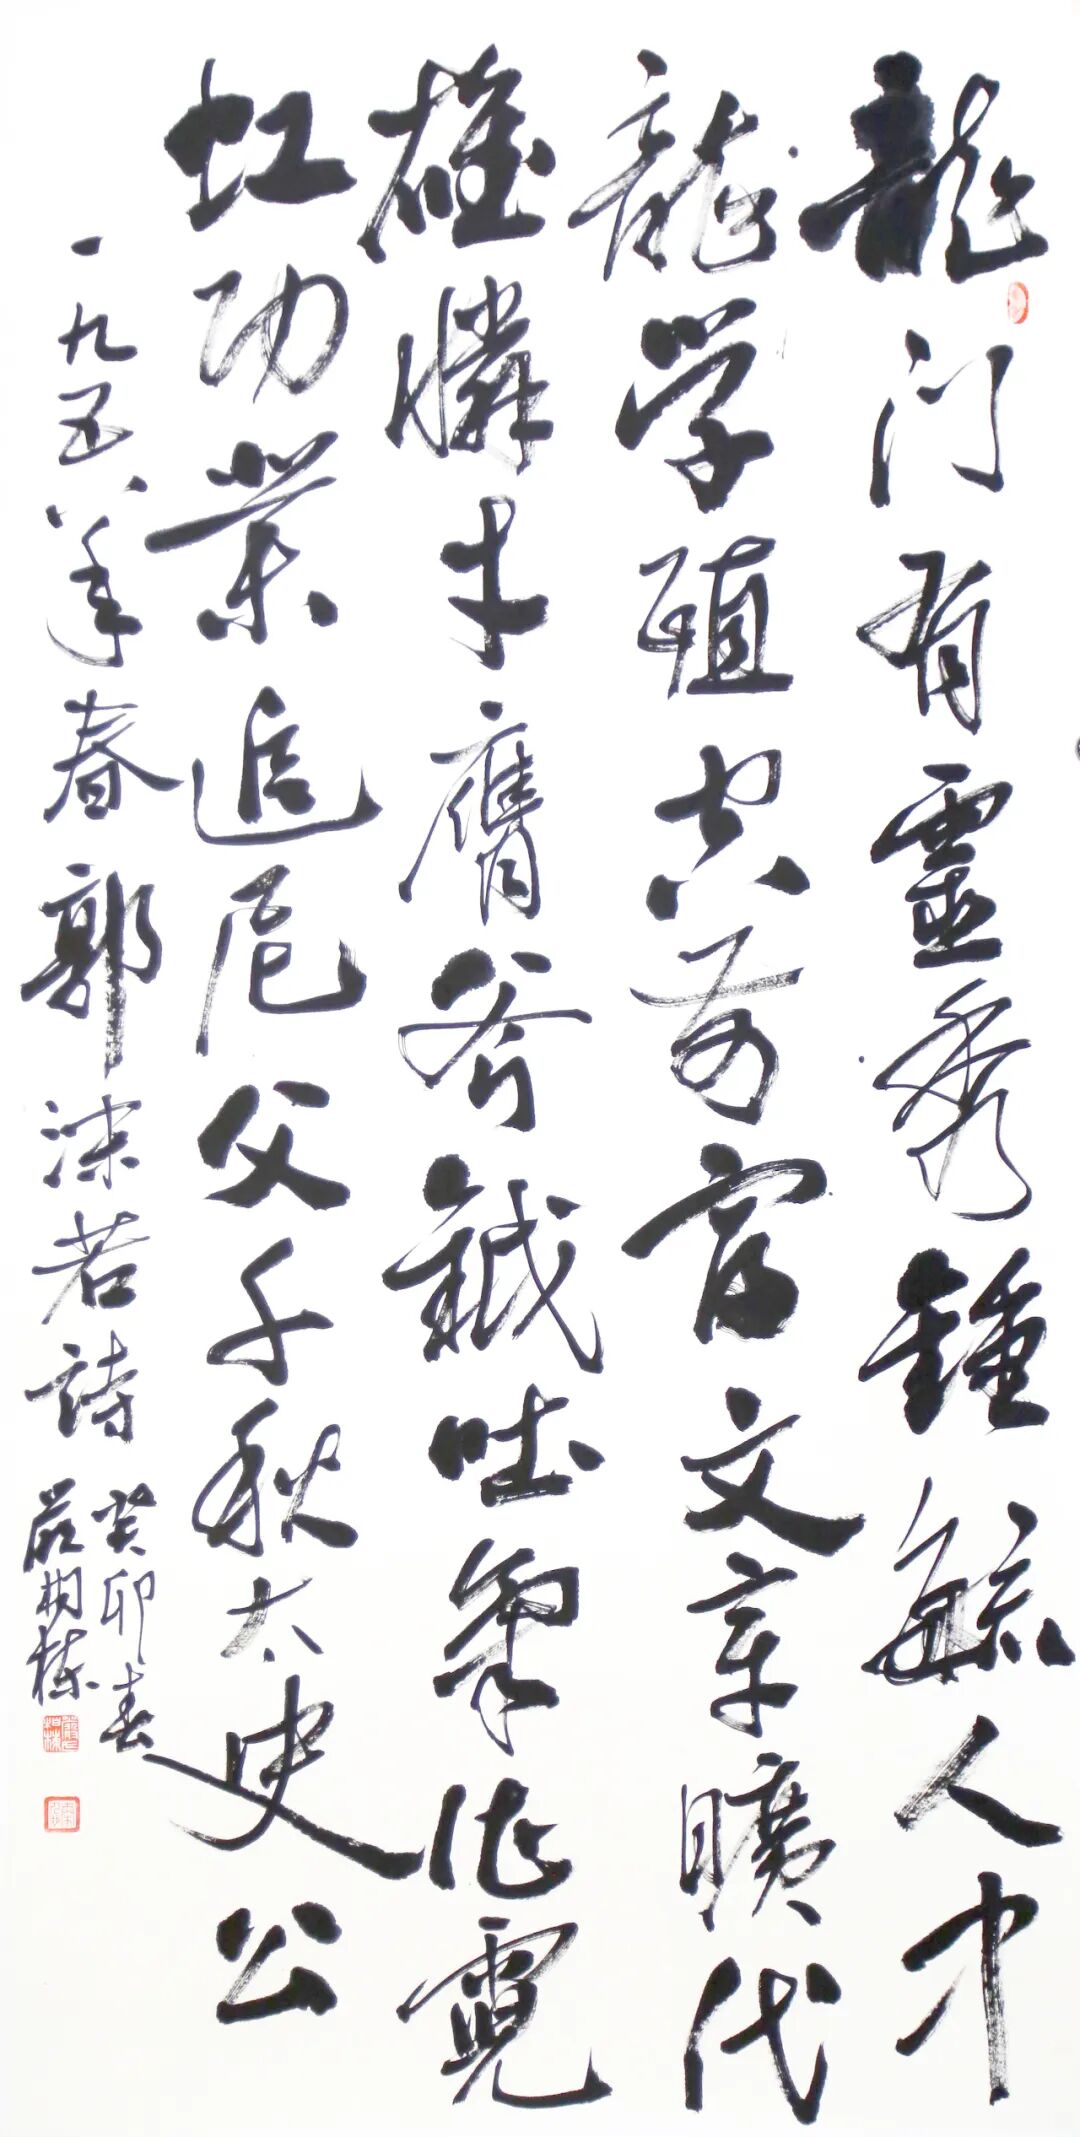 龍門有靈秀鍾毓人中
龍学殖空前富文章曠代
雄憐才膺斧鉞吐氣作霓
虹功業追尼父千秋太史公
一九五八年春郭沫若詩
癸卯春